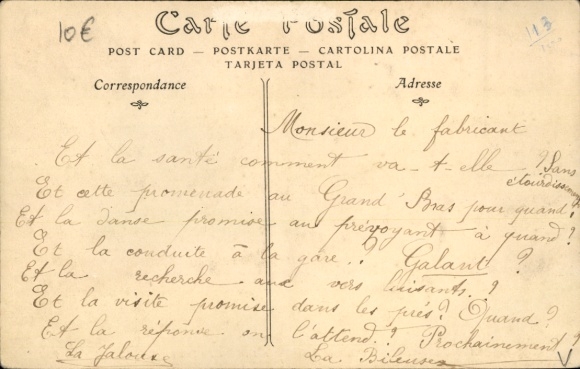 10€
113
Carte Postale
POST CARD — POSTKARTE — CARTOLINA POSTALE
TARJETA POSTAL
Correspondance
Adresse
Monsieur le fabricant
Et la santé comment va-t-elle ? Sans
étourdissements
Et cette promenade au Grand Bras pour quand ?
Et la danse promise au prévoyant à quand ?
Et la conduite à la gare ? Galant ?
Et la recherche aux vers luisants ?
Et la visite promise dans les prés ? Quand ?
Et la réponse on l'attend ? Prochainement ?
La Jalouse
La Bileuse